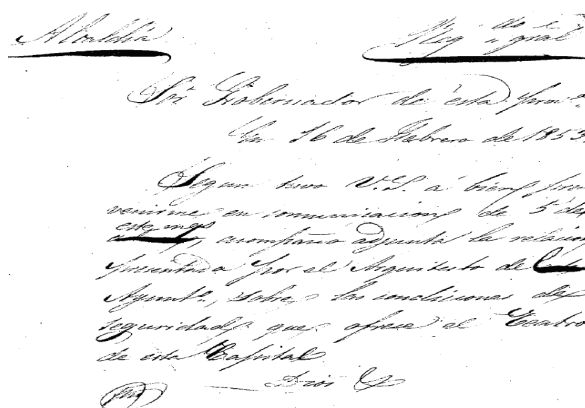 Alcaldía
Sor. Gobernador de esta Prova.
En 16 de Febrero de 1853
Segun tuvo V.S. á bien pre
venirme en comunicacion de 5 de
este mes, acompaño adjunta la relacion
presentada por el Arquitecto de
Ayunto., sobre las condiciones de
seguridad que ofrece el Teatro
de esta Capital
Dios